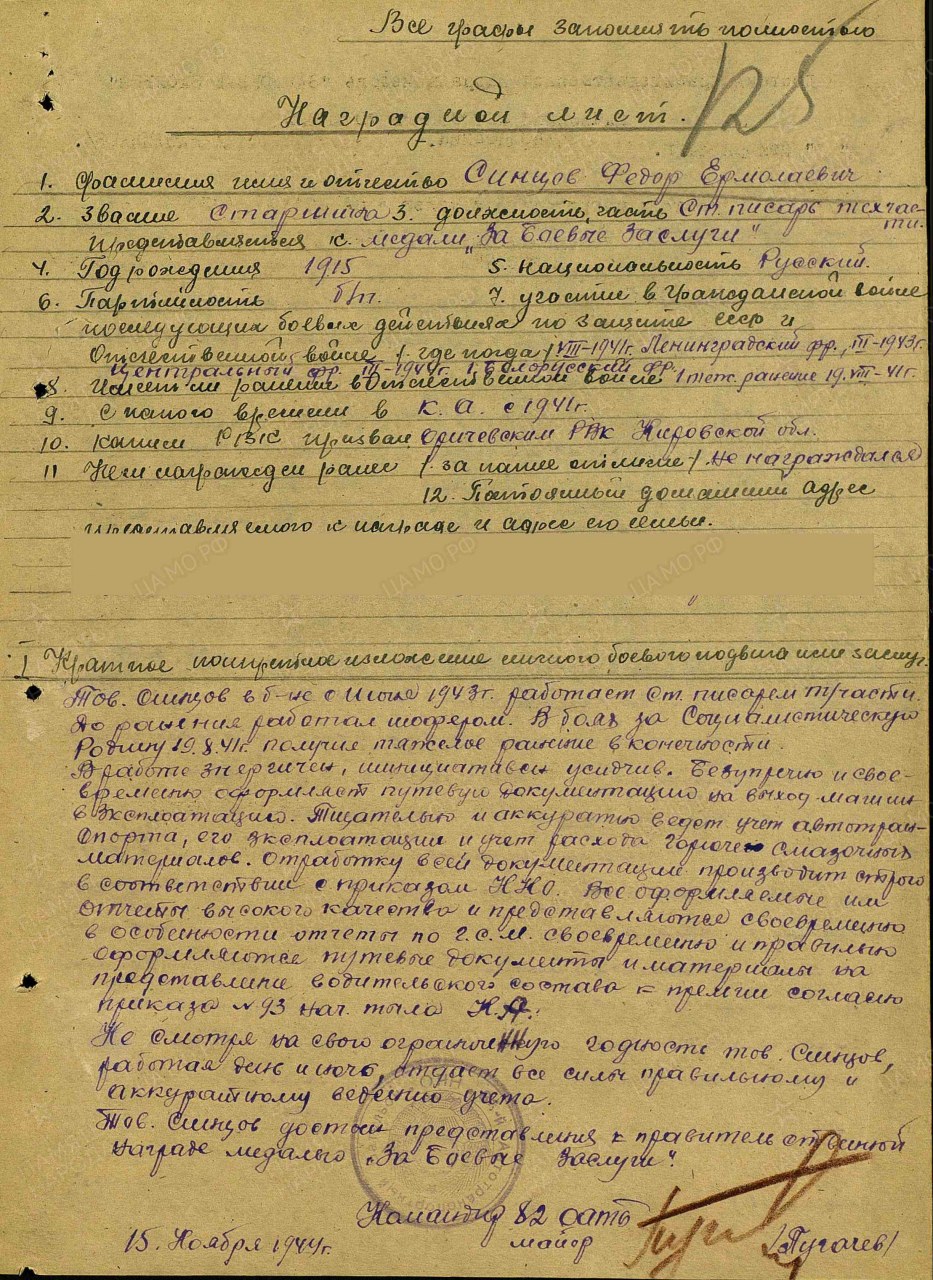 Все графы заполнять полностью
125
Наградной лист.
1. Фамилия имя и отчество Синцов Федор Ермолаевич
2. Звание Старшина 3. должность, часть Ст. писарь техчас-
ти.
Представляется к медали „За Боевые Заслуги"
4. Год рождения 1915 5. национальность Русский.
6. Партийность б/п. 7. участие в гражданской войне
последующих боевых действиях по защите СССР и
Отечественной войне /где когда/ VIII-1941г. Ленинградский фр., III-1943г.
Центральный фр. III-1944г. 1 Белорусский фр.
8. Имеет ли ранения в Отечественной войне 1 тяж. ранение 19.VIII-41г.
9. С какого времени в К.А. с 1941г.
10. Каким РВК призван Оричевским РВК Кировской обл.
11 Чем награжден ранее /за какие отличие/ Не награждался
12. Постоянный домашний адрес
представляемого к награде и адрес его семьи.
ЦАМО РФ
I Краткое конкретное изложение личного боевого подвига или заслуг.
Тов. Синцов в б-не с Июня 1943г. работает Ст. писарем т/части.
До ранения работал шофером. В боях за Социалистическую
Родину 19.8.41г. получил тяжелое ранение в конечности.
В работе энергичен, инициативен усидчив. Безупречно и свое-
временно оформляет путевую документацию на выход машин
в Эксплоатацию. Тщательно и аккуратно ведет учет автотран-
спорта, его эксплоатации и учет расхода горюче смазочных
материалов. Отработку всей документации производит строго
в соответствие с приказом НКО. Все оформляемые им
отчеты высокого качества и представляются своевременно
в особенности отчеты по г.с.м. своевременно и правильно
оформляются путевые документы и материалы на
представление водительского состава к премии согласно
приказа №93 нач. тыла К.А.
Не смотря на свою ограниченную годность тов. Синцов,
работая день и ночь, отдает все силы правильному и
аккуратному ведению учета.
Тов. Синцов достоин представления к правительственной
награде медалью „За Боевые Заслуги".
Командир 82 оатб
майор /Пугачев/
15. Ноября 1944г.